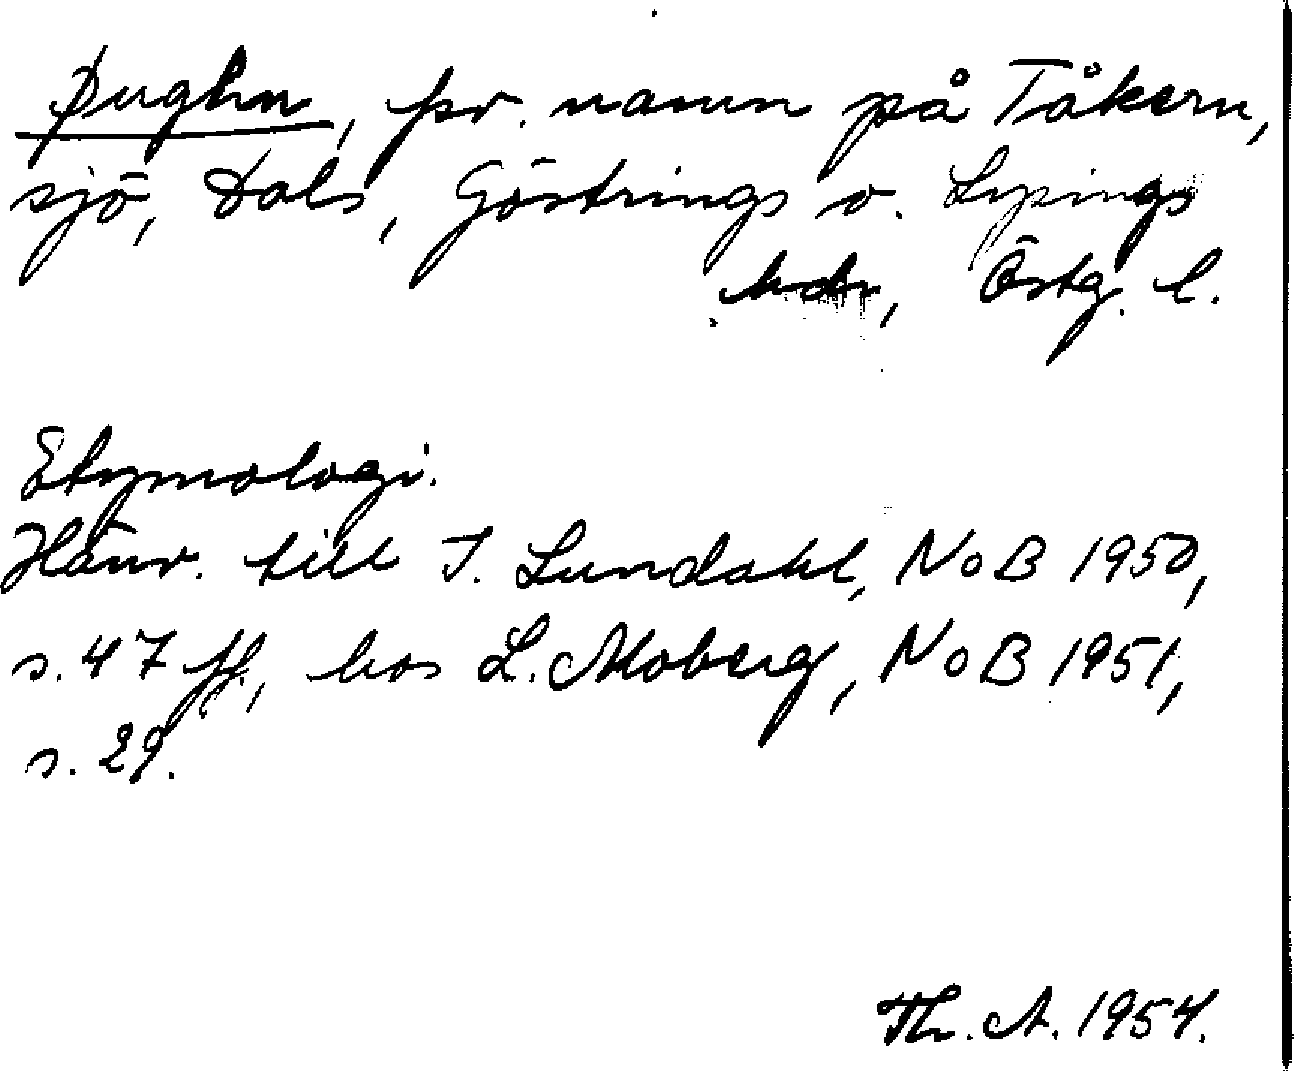 Þughn, fsv. namn på Tåkern,
sjö, Dals, Göstrings o. Lysings
hdr, Östg. l.
Etymologi.
Hänv. till I. Lundahl, NoB 1950,
s. 47 ff., hos L. Moberg, NoB 1951,
s. 29.
Th. A. 1954.